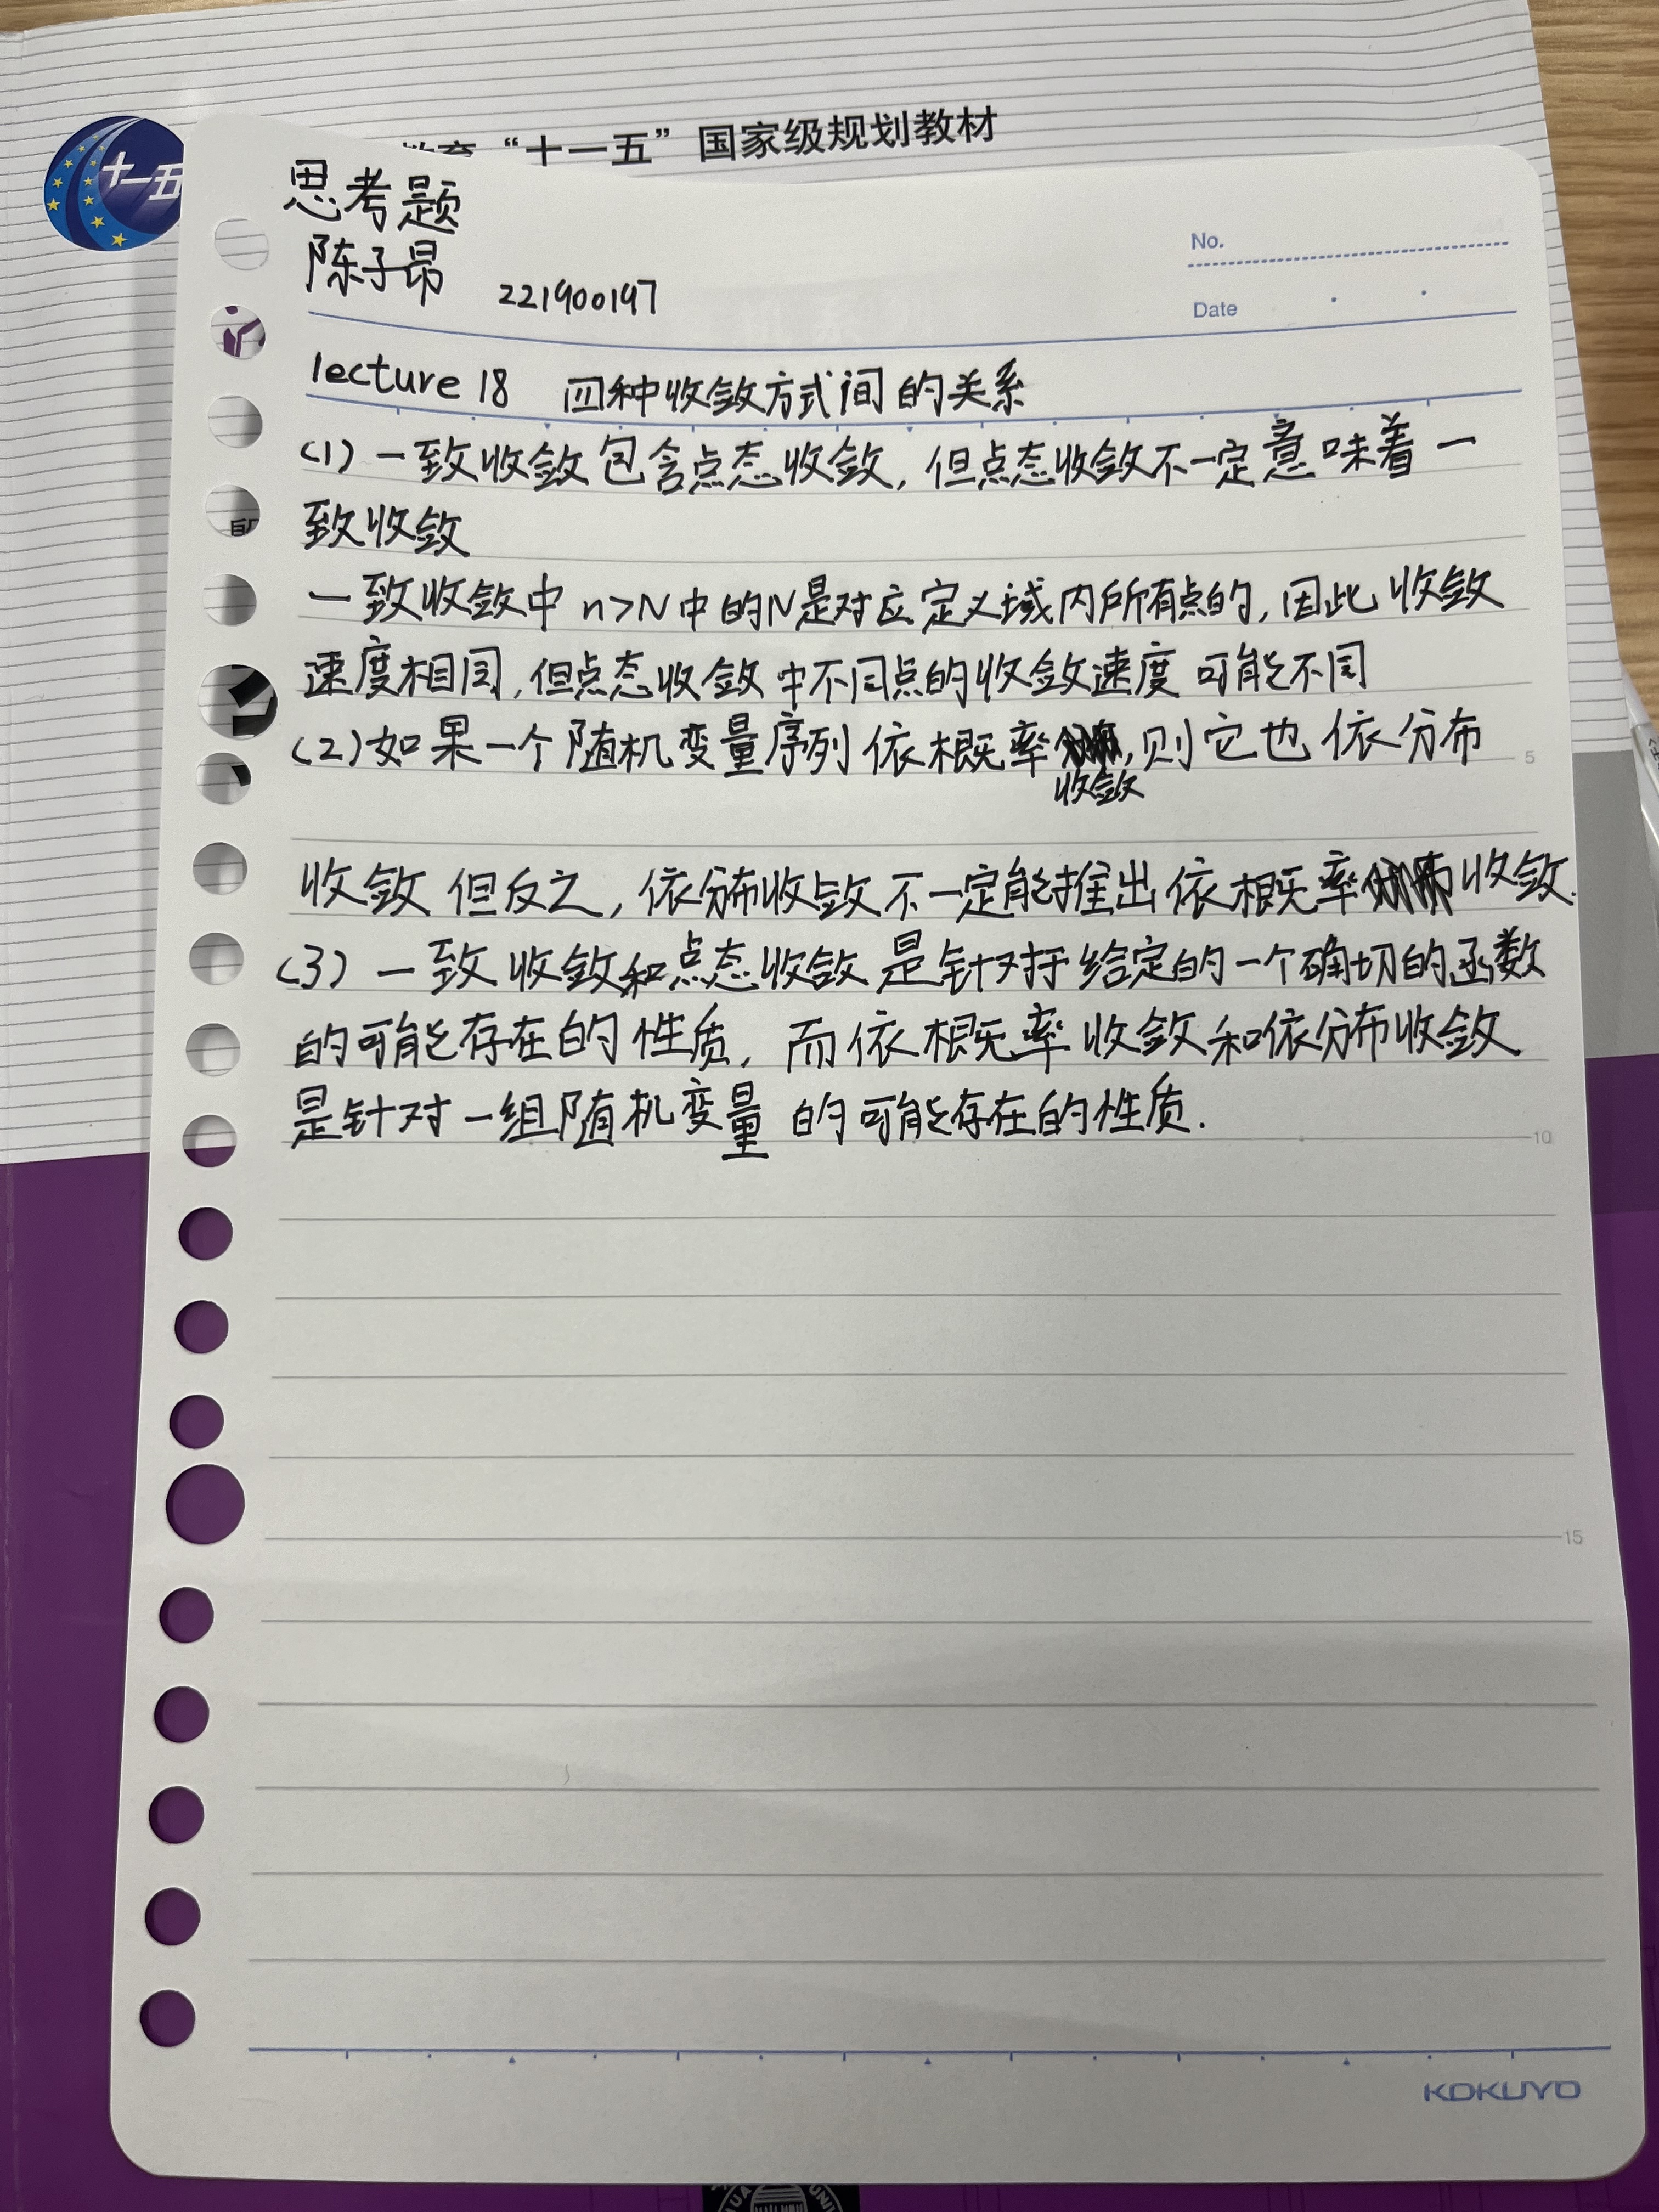 “十一五”国家级规划教材
十一五
思考题
陈子昂 221900197
No.
Date
lecture 18 四种收敛方式间的关系
(1) 一致收敛包含点态收敛, 但点态收敛不一定意味着一
致收敛
一致收敛中 n>N 中的N是对应定义域内所有点的, 因此收敛
速度相同, 但点态收敛中不同点的收敛速度可能不同
(2) 如果一个随机变量序列依概率收敛, 则它也依分布
5
收敛 但反之, 依分布收敛不一定能推出依概率收敛.
(3) 一致收敛和点态收敛是针对于给定的一个确切的函数
的可能存在的性质, 而依概率收敛和依分布收敛
是针对一组随机变量的可能存在的性质.
10
15
KOKUYO